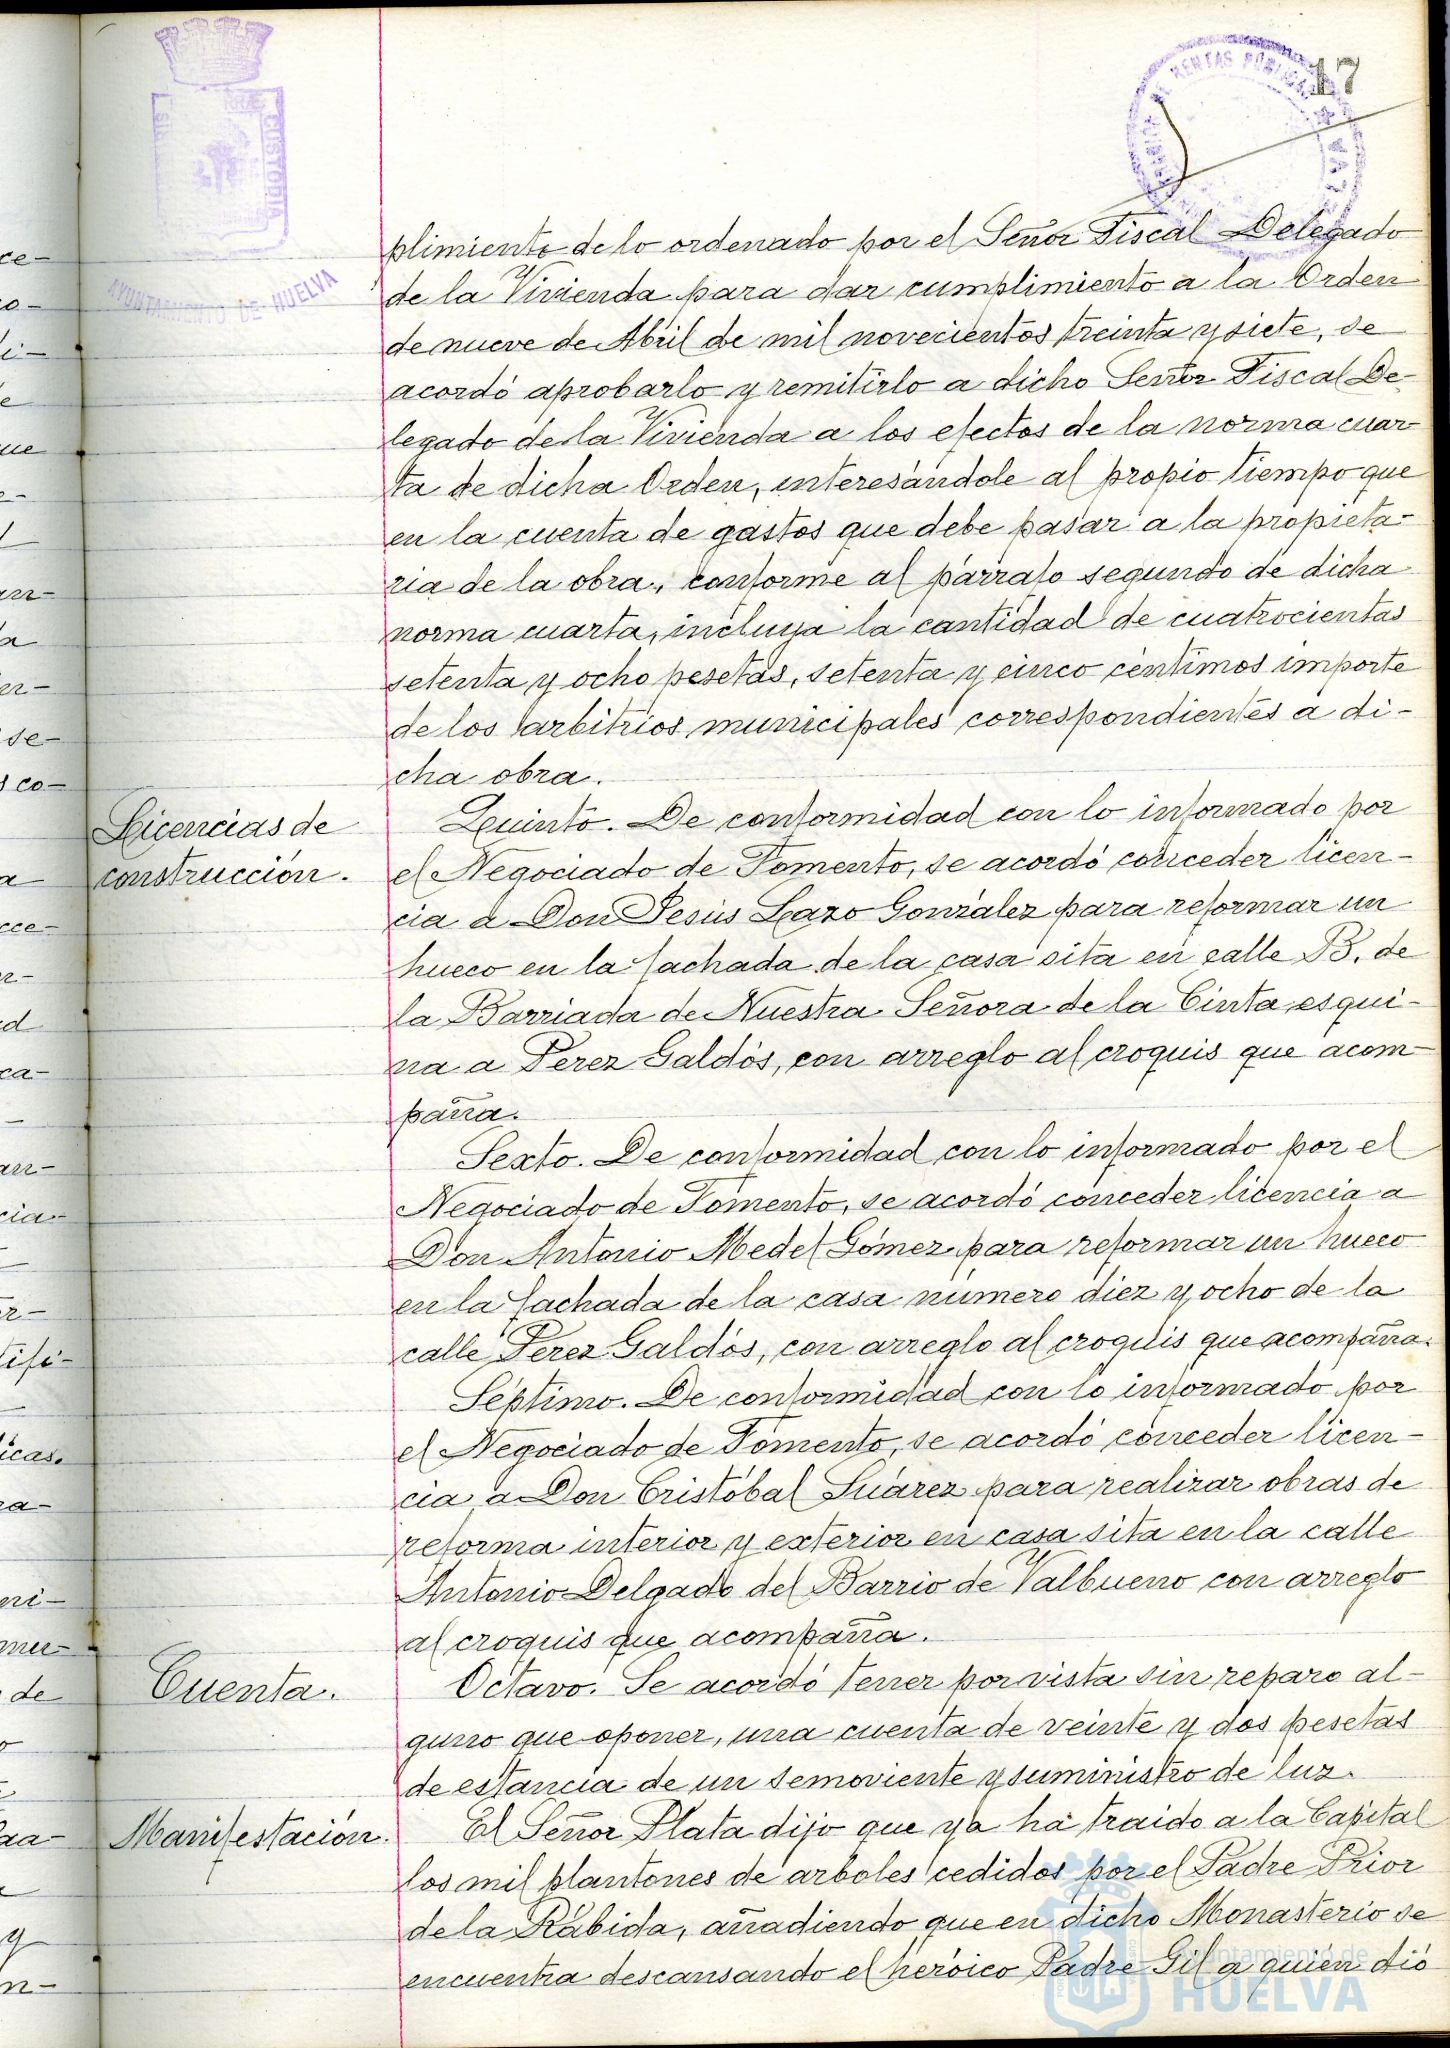 17
RENTAS PÚBLICAS
CUSTODIA
AYUNTAMIENTO DE HUELVA
plimiento de lo ordenado por el Señor Fiscal Delegado
de la Vivienda para dar cumplimiento a la Orden
de nueve de Abril de mil novecientos treinta y siete, se
acordó aprobarlo y remitirlo a dicho Señor Fiscal De-
legado de la Vivienda a los efectos de la norma cuar-
ta de dicha Orden, interesándole al propio tiempo que
en la cuenta de gastos que debe pasar a la propieta-
ria de la obra, conforme al párrafo segundo de dicha
norma cuarta, incluya la cantidad de cuatrocientas
setenta y ocho pesetas, setenta y cinco céntimos importe
de los arbitrios municipales correspondientes a di-
cha obra.
Licencias de
construcción.
Quinto. De conformidad con lo informado por
el Negociado de Fomento, se acordó conceder licen-
cia a Don Jesús Lazo González para reformar un
hueco en la fachada de la casa sita en calle B. de
la Barriada de Nuestra Señora de la Cinta esqui-
na a Perez Galdós, con arreglo al croquis que acom-
paña.
Sexto. De conformidad con lo informado por el
Negociado de Fomento, se acordó conceder licencia a
Don Antonio Medel Gómez para reformar un hueco
en la fachada de la casa número diez y ocho de la
calle Perez Galdós, con arreglo al croquis que acompaña.
Séptimo. De conformidad con lo informado por
el Negociado de Fomento, se acordó conceder licen-
cia a Don Cristóbal Suárez para realizar obras de
reforma interior y exterior en casa sita en la calle
Antonio Delgado del Barrio de Valbueno con arreglo
al croquis que acompaña.
Cuenta.
Octavo. Se acordó tener por vista sin reparo al-
guno que oponer, una cuenta de veinte y dos pesetas
de estancia de un semoviente y suministro de luz.
Manifestación.
El Señor Plata dijo que ya ha traido a la Capital
los mil plantones de arboles cedidos por el Padre Prior
de la Rábida, añadiendo que en dicho Monasterio se
encuentra descansando el heróico Padre Gil a quién dió
Ayuntamiento de
HUELVA